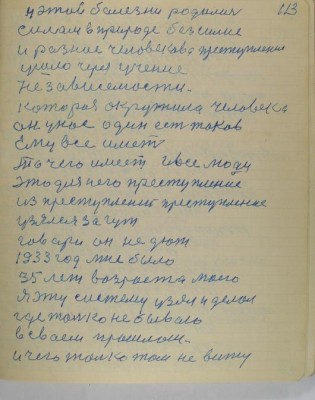 113
у этой болезни родилися
силам в природе безсилие
и разние человекова преступления
ушло через учение
Независемости.
которая окружила человека
он у нас один ест таков
Ему все имеет
То чего имеет и все люди
это для него преступление
из преступлений преступление
узялся за гуж
говори он не дюж
1933 год мне было
35 лет возроста моего
Я эту систему узял и делал
где только не бывало
в сваем прошлом.
и чего только там не вижу